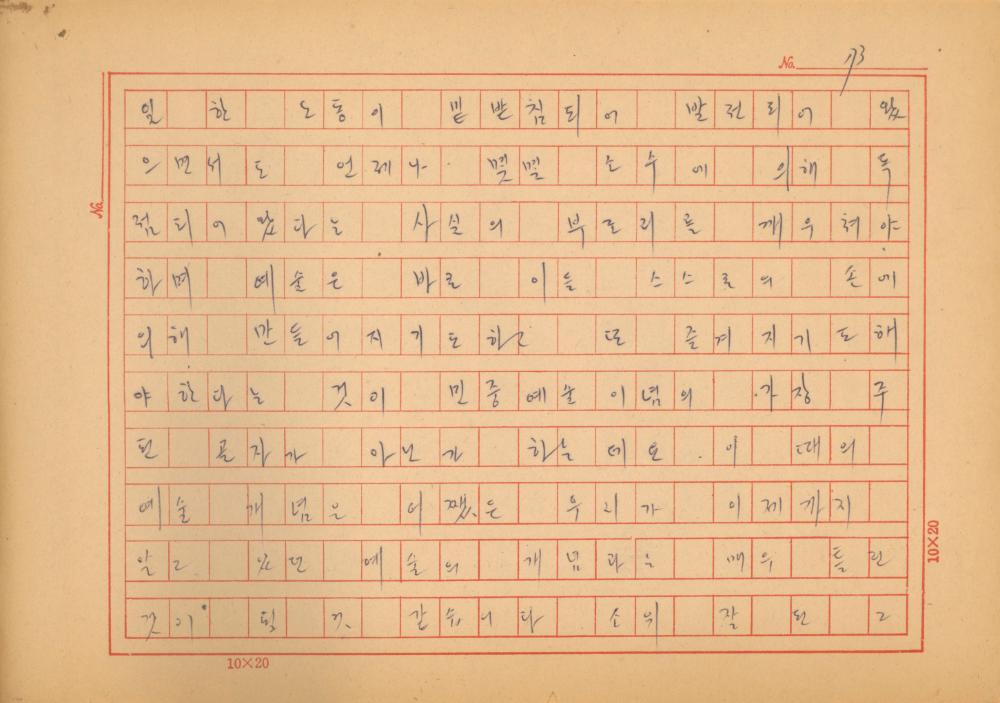 No. 73
있 한 노동이 밑받침되어 발전되어 왔
으면서도 언제나 몇몇 소수에 의해 독
점되어 왔다는 사실의 부조리를 깨우쳐야
하며 예술은 바로 이들 스스로의 손에
의해 만들어지기도하고 또 즐겨지기도해
야한다는 것이 민중예술이념의 가장 주
된 골자가 아닌가 하는데요. 이 때의
예술 개념은 어쨌든 우리가 이제까지
알고 있던 예술의 개념과는 매우 틀린
것이 될 것 같습니다 소위 잘된 그
No.
10×20
10×20